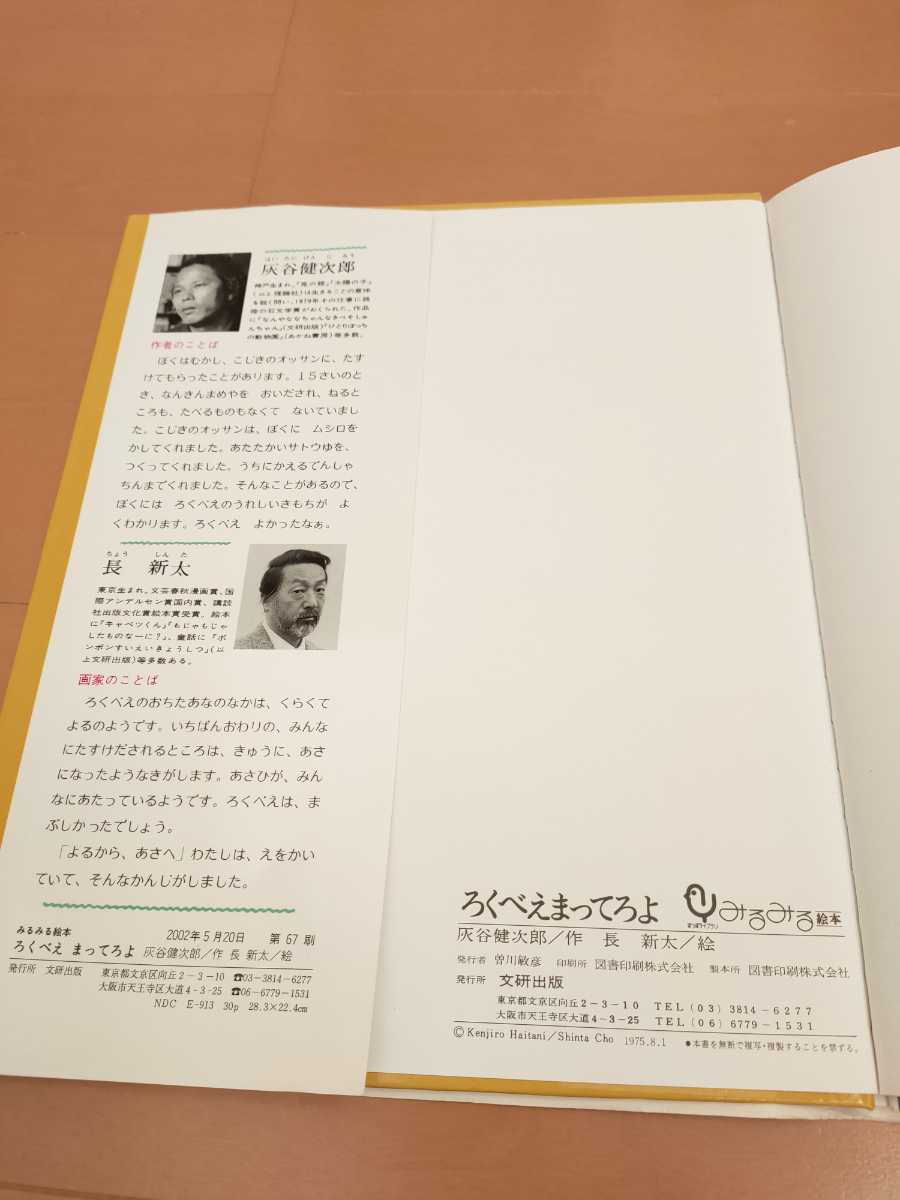 はいたにけんじろう
灰谷健次郎
神戸生まれ。『兎の眼』『太陽の子』
(以上理論社)は生きることの意味
を鋭く問い、1979年その仕事に路
傍の石文学賞がおくられた。作品
に『なんやななちゃんなきべそしゅ
んちゃん』(文研出版)『ひとりぼっち
の動物園』(あかね書房)等多数。
作者のことば
ぼくはむかし、こじきのオッサンに、たす
けてもらったことがあります。15さいのと
き、なんきんまめやを おいだされ、ねると
ころも、たべるものもなくて ないていまし
た。こじきのオッサンは、ぼくに ムシロを
かしてくれました。あたたかいサトウゆを、
つくってくれました。うちにかえるでんしゃ
ちんまでくれました。そんなことがあるので、
ぼくには ろくべえのうれしいきもちが よ
くわかります。ろくべえ よかったなぁ。
ちょう しんた
長 新太
東京生まれ。文芸春秋漫画賞、国
際アンデルセン賞国内賞、講談
社出版文化賞絵本賞受賞。絵本
に『キャベツくん』『もじゃもじゃ
したものなーに?』、童話に『ボ
ンボンすいえいきょうしつ』(以
上文研出版)等多数ある。
画家のことば
ろくべえのおちたあなのなかは、くらくて
よるのようです。いちばんおわりの、みんな
にたすけだされるところは、きゅうに、あさ
になったようなきがします。あさひが、みん
なにあたっているようです。ろくべえは、ま
ぶしかったでしょう。
「よるから、あさへ」わたしは、えをかい
ていて、そんなかんじがしました。
みるみる絵本 2002年5月20日 第67刷
ろくべえ まってろよ 灰谷健次郎/作 長 新太/絵
発行所 文研出版 東京都文京区向丘2-3-10 ☎03-3814-6277
大阪市天王寺区大道4-3-25 ☎06-6779-1531
NDC E-913 30p 28.3×22.4cm
ろくべえまってろよ みるみる絵本
灰谷健次郎/作 長 新太/絵
発行者 曽川敏彦 印刷所 図書印刷株式会社 製本所 図書印刷株式会社
発行所 文研出版
東京都文京区向丘2-3-10 TEL(03)3814-6277
大阪市天王寺区大道4-3-25 TEL(06)6779-1531
© Kenjiro Haitani/Shinta Cho 1975.8.1 ●本書を無断で複写・複製することを禁ずる。